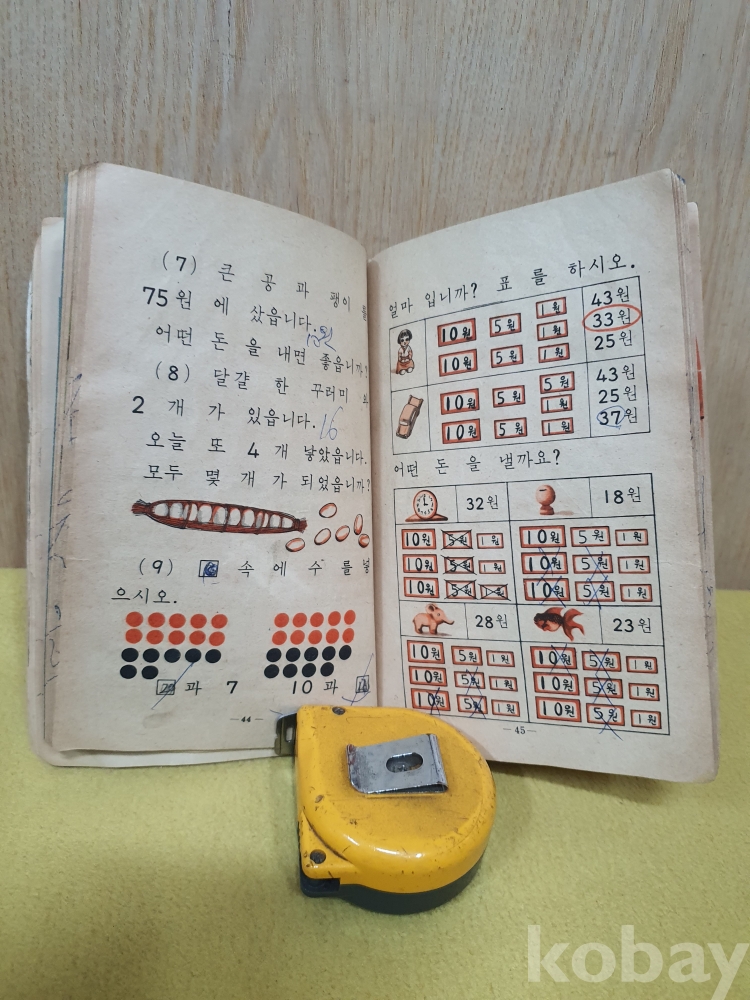 (7) 큰 공 과 괭이 를
75원 에 샀읍니다.
어떤 돈 을 내면 좋읍니까?
(8) 달걀 한 꾸러미
2 개 가 있읍니다. 16
오늘 또 4 개 낳았읍니다.
모두 몇 개 가 되었읍니까?
(9) 속 에 수 를 넣
으시오.
과 7 10 과
—44—
얼마 입니까? 표 를 하시오.
10원 5원 1원 1원 43원
33원
10원 5원 1원 25원
10원 5원 5원 1원 43원
25원
10원 5원 1원 37원
어떤 돈 을 낼까요?
32원 18원
10원 5원 1원 10원 5원 1원
10원 5원 1원 10원 5원 1원
10원 5원 1원 10원 5원 1원
28원 23원
10원 5원 1원 10원 5원 1원
10원 5원 1원 10원 5원 1원
10원 5원 1원 10원 5원 1원
—45—
kobay